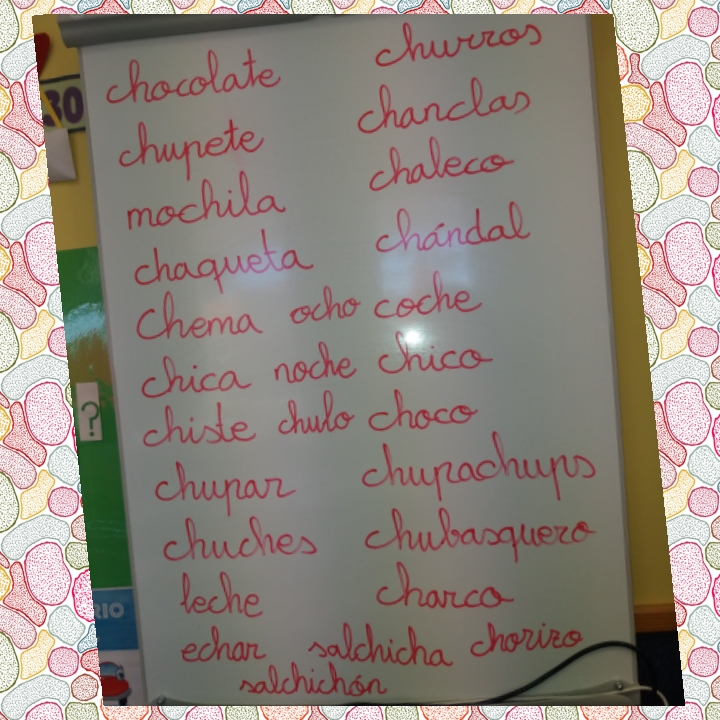 chocolate churros
chupete chanclas
mochila chaleco
chaqueta chándal
Chema ocho coche
chica noche chico
chiste chulo choco
chupar chupachups
chuches chubasquero
leche charco
echar salchicha chorizo
salchichón
30
?
RIO